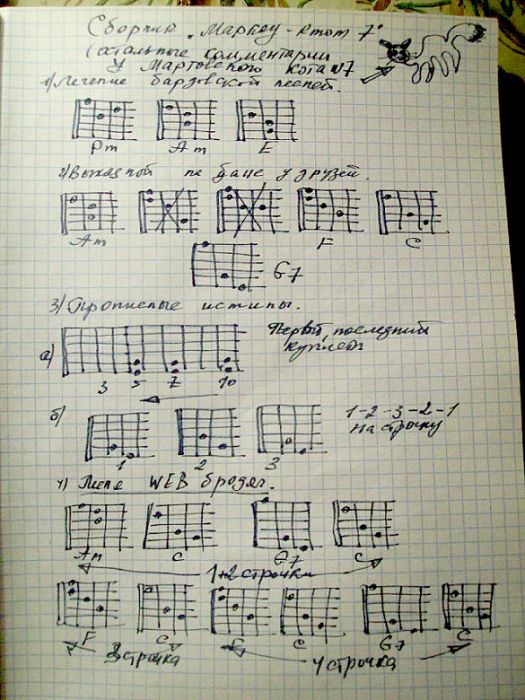 Сборник "Маркеу-стот 7"
(остальные комментарии
у Мартовского кота №7
1) Лечение бардовской песней.
Dm Am E
2) Выходной на даче у друзей.
Am F C
G7
3) Прописные истины.
а) Первый, последний
куплеты
3 5 7 10
б) 1-2-3-2-1
на строчку
1 2 3
4) Песня WEB бродяг.
Am C G7 C
1+2 строчки
F C F C G7 C
3 строчка 4 строчка